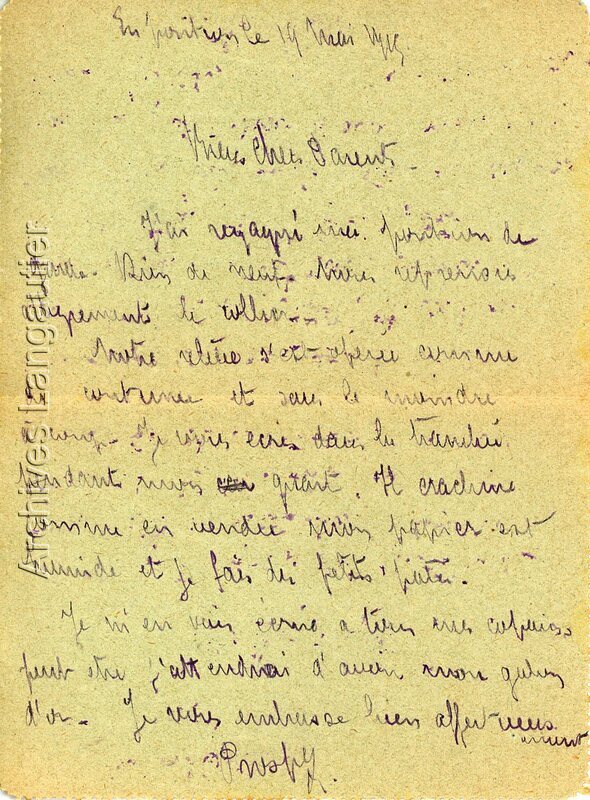 En position le 19 Mai 1915.
Bien Chers Parents
J'ai regagné ma position de
Rien de neuf. Nous reprenons
le collier.
Notre relève s'est opérée comme
coutume et sans le moindre
Je vous écris dans la tranchée
pendant mon quart. Il crachine
comme en vendée mon papier est
humide et je fais des petits patés.
Je m'en vais écrire a tous mes copains
peut etre j'attendrai d'avoir mon galon
d'or. Je vous embrasse bien affectueuse
ment
Archives Langautier